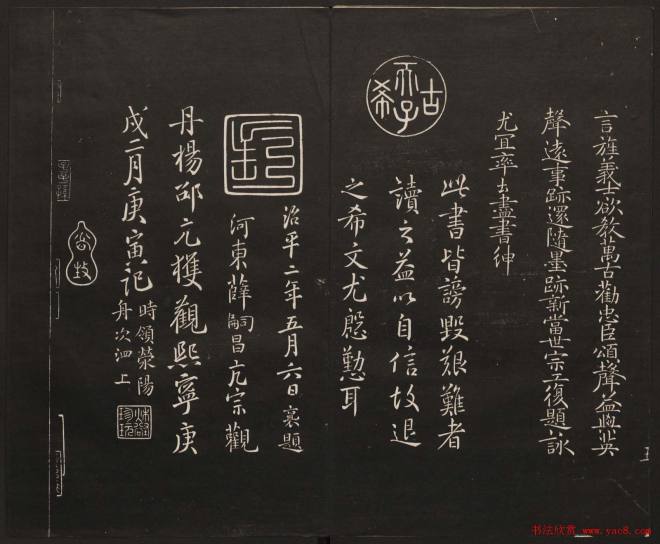 言旌義士欲教萬古勸忠臣頌聲益與英
聲遠事跡還隨墨跡新當世宗工復題詠
尤宜率土盡書紳
此書皆謗毀艱難者
讀之益以自信故退
之希文尤慇懃耳
治平二年五月六日裏題
河東薛嗣昌亢宗觀
丹楊邵亢獲觀熙寧庚
戍二月庚寅記
時領滎陽
舟次泗上
书法欣赏 www.yac8.com